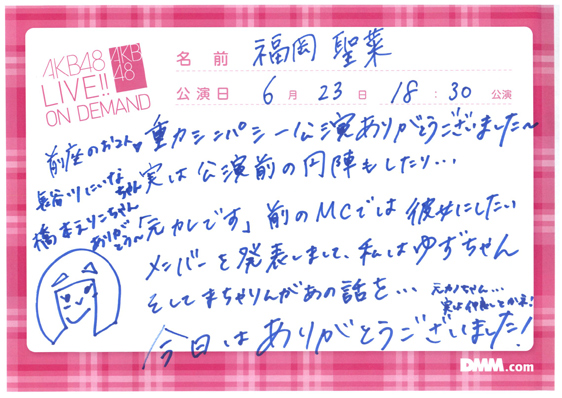 AKB48
LIVE!!
ON DEMAND
AKB
48
名前 福岡 聖菜
公演日 6月23日 18:30 公演
前座のお2人
長谷川
ちゃん
橋本えりこちゃん
ありがとう〜
重力シンパシー公演ありがとうございました〜
実は公演前の円陣もしたり…
「元カレです」前のMCでは彼女にしたい
メンバーを発表しまして、私はゆずちゃん
そしてまちゃりんがあの話を…
元カノちゃん…
今日はありがとうございました!
DMM.com